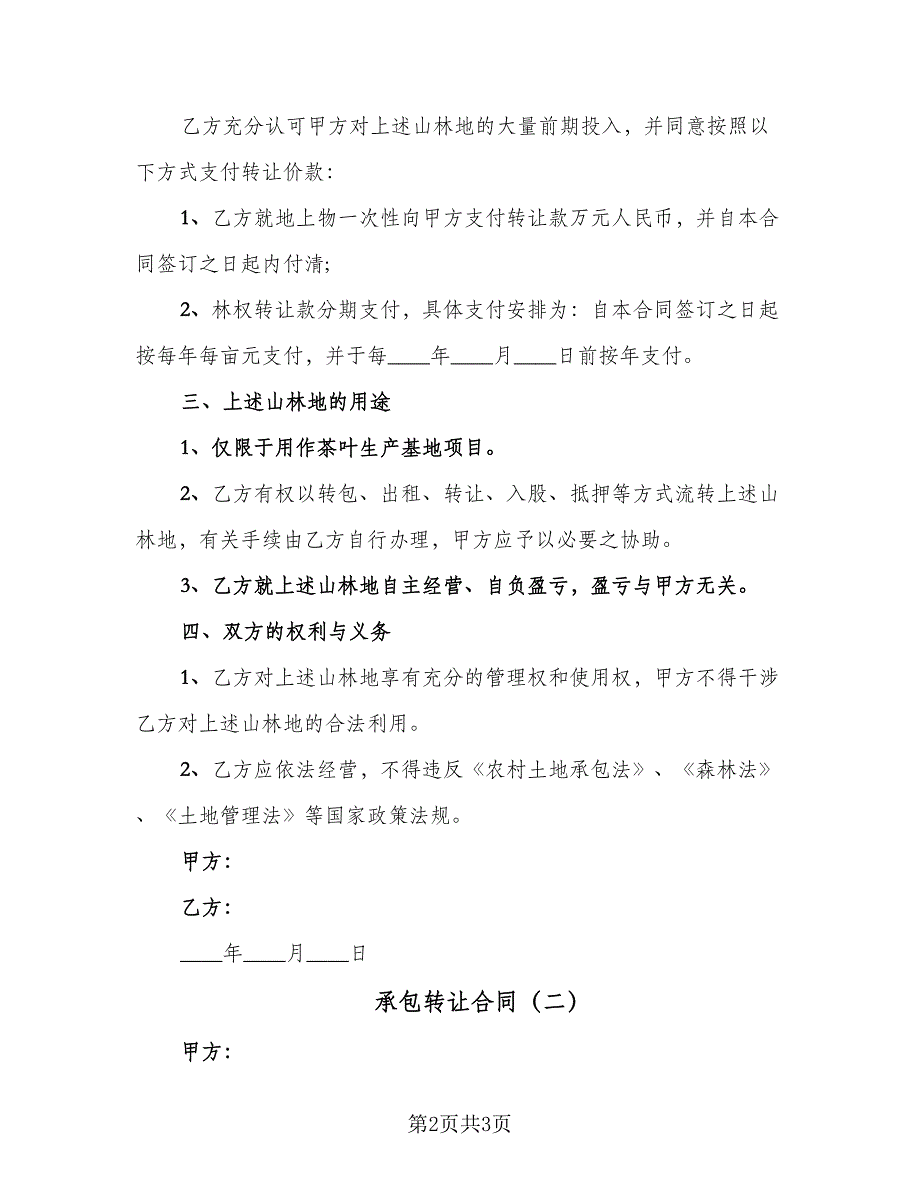 乙方充分认可甲方对上述山林地的大量前期投入，并同意按照以
下方式支付转让价款：
1、乙方就地上物一次性向甲方支付转让款万元人民币，并自本合
同签订之日起内付清;
2、林权转让款分期支付，具体支付安排为：自本合同签订之日起
按每年每亩元支付，并于每____年____月____日前按年支付。
三、上述山林地的用途
1、仅限于用作茶叶生产基地项目。
2、乙方有权以转包、出租、转让、入股、抵押等方式流转上述山
林地，有关手续由乙方自行办理，甲方应予以必要之协助。
3、乙方就上述山林地自主经营、自负盈亏，盈亏与甲方无关。
四、双方的权利与义务
1、乙方对上述山林地享有充分的管理权和使用权，甲方不得干涉
乙方对上述山林地的合法利用。
2、乙方应依法经营，不得违反《农村土地承包法》、《森林法》
、《土地管理法》等国家政策法规。
甲方：
乙方：
____年____月____日
承包转让合同（二）
甲方：
第2页共3页